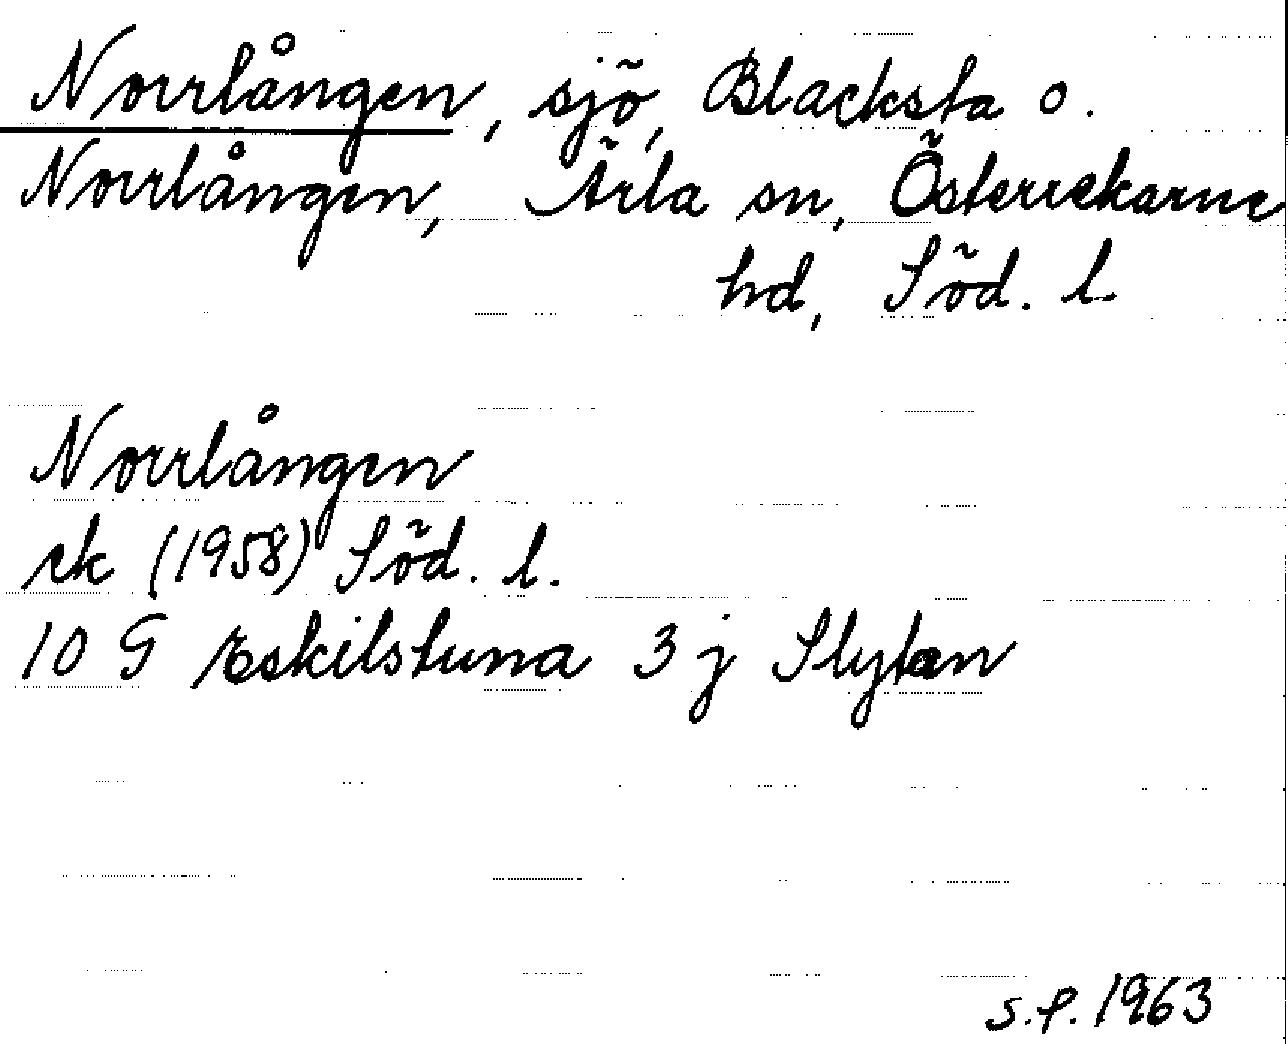 Norrlången, sjö, Blacksta o.
Norrlången, Ärla sn, Österrekarne
hd, Söd. l.
Norrlången
ek (1958) Söd. l.
10 G Eskilstuna 3 j Slytan
S.P. 1963